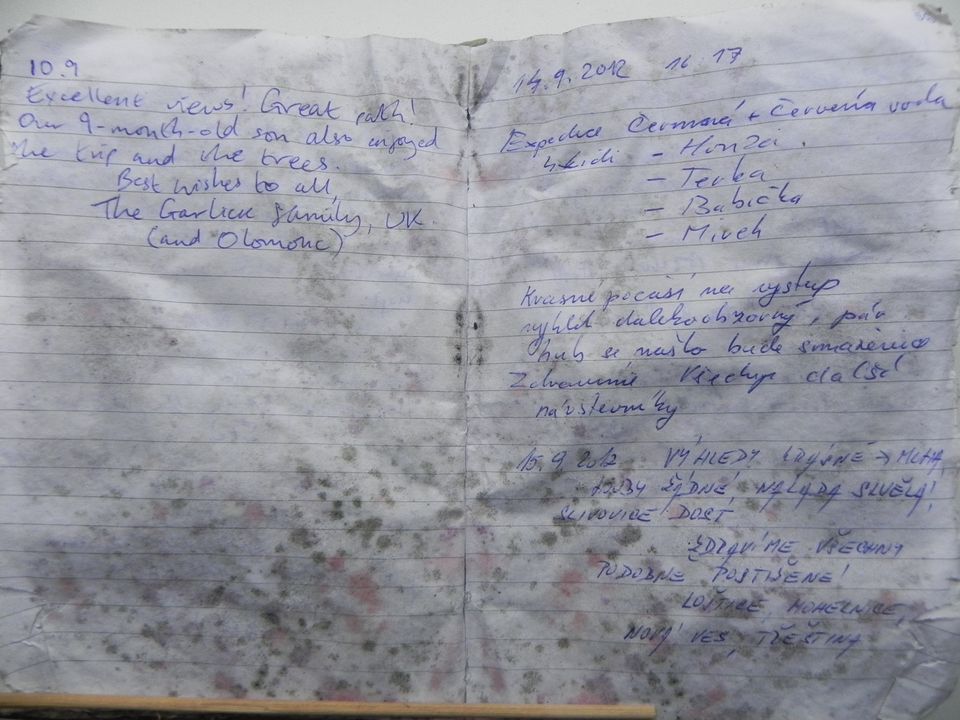 10.9
Excellent views! Great path!
Our 9-month-old son also enjoyed
the trip and the trees.
Best wishes to all,
The Garlick family, UK.
(and Olomouc)
14.9.2012 16:17
Expedice Čermná + Červená voda
4 lidi - Honza
- Terka
- Babička
- Mirek
Krásné počasí na výstup
výhled dalekoobzorný, pár
hub se našlo bude smaženice
Zdravíme všechny další
návštěvníky
15.9.2012 VÝHLEDY ŽÁDNÉ → MLHA
ŽÁDNÉ, NÁLADA SKVĚLÁ!
SLIVOVICE DOST
ZDRAVÍME VŠECHNY
PODOBNĚ POSTIŽENÉ!
LOŠTICE, MOHELNICE,
NOVÁ VES, TŘEŠTINA